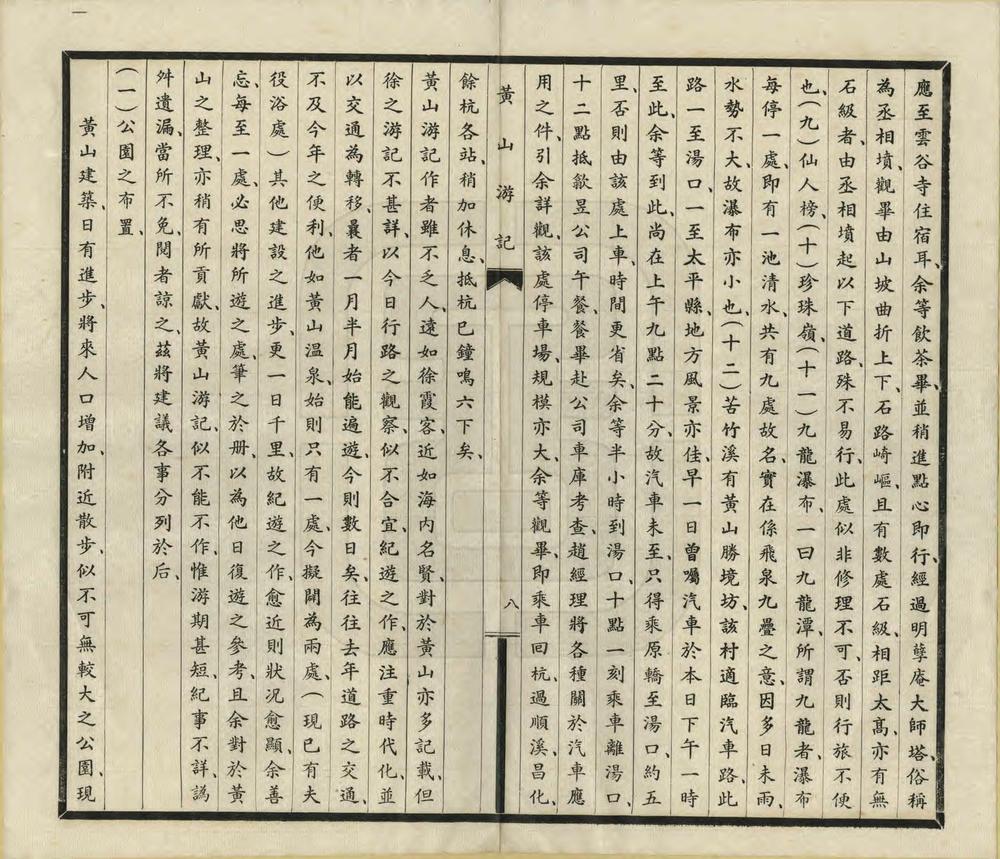 應至雲谷寺住宿耳、余等飲茶畢、並稍進點心即行、經過明孽庵大師塔、俗稱
為丞相墳、觀畢由山坡曲折上下、石路崎嶇、且有數處石級、相距太高、亦有無
石級者、由丞相墳起以下道路、殊不易行、此處似非修理不可、否則行旅不便
也、(九)仙人榜、(十)珍珠嶺、(十一)九龍瀑布、一曰九龍潭、所謂九龍者、瀑布
每停一處、即有一池清水、共有九處故名、實在係飛泉九疊之意、因多日未雨、
水勢不大、故瀑布亦小也、(十二)苦竹溪有黃山勝境坊、該村適臨汽車路、此
路一至湯口、一至太平縣、地方風景亦佳、早一日曾囑汽車於本日下午一時
至此、余等到此、尚在上午九點二十分、故汽車未至、只得乘原轎至湯口、約五
里、否則由該處上車、時間更省矣、余等半小時到湯口、十點一刻乘車離湯口、
十二點抵歙昱公司午餐、餐畢赴公司車庫考查、趙經理將各種關於汽車應
用之件、引余詳觀、該處停車場、規模亦大、余等觀畢、即乘車回杭、過順溪、昌化、
黃山游記
八
餘杭各站、稍加休息、抵杭已鐘鳴六下矣、
黃山游記作者雖不乏人、遠如徐霞客、近如海內名賢、對於黃山亦多記載、但
徐之游記不甚詳、以今日行路之觀察、似不合宜、紀遊之作、應注重時代化、並
以交通為轉移、曩者一月半月始能遍遊、今則數日矣、往往去年道路之交通、
不及今年之便利、他如黃山溫泉、始則只有一處、今擬開為兩處、(現已有夫
役浴處)其他建設之進步、更一日千里、故紀遊之作、愈近則狀況愈顯、余善
忘、每至一處、必思將所遊之處、筆之於册、以為他日復遊之參考、且余對於黃
山之整理、亦稍有所貢獻、故黃山游記、似不能不作、惟游期甚短、紀事不詳、譌
舛遺漏、當所不免、閱者諒之、茲將建議各事分列於后、
(一)公園之布置、
黃山建築、日有進步、將來人口增加、附近散步、似不可無較大之公園、現